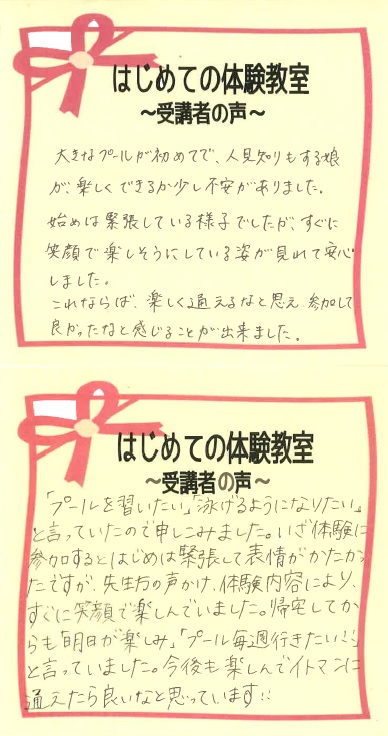 はじめての体験教室
～受講者の声～
大きなプールが初めてで、人見知りもする娘
が、楽しくできるか少し不安がありました。
始めは緊張している様子でしたが、すぐに
笑顔で楽しそうにしている姿が見れて安心
しました。
これならば、楽しく通えるなと思え 参加して
良かったなと感じることが出来ました。
はじめての体験教室
～受講者の声～
「プールを習いたい」「泳げるようになりたい」
と言っていたので申しこみました。いざ体験に
参加するとはじめは緊張して表情がかたかっ
たですが、先生方の声かけ、体験内容により、
すぐに笑顔で楽しんでいました。帰宅してか
らも「明日が楽しみ」「プール毎週行きたい!!」
と言っていました。今後も楽しんでイトマンに
通えたら良いなと思っています!!